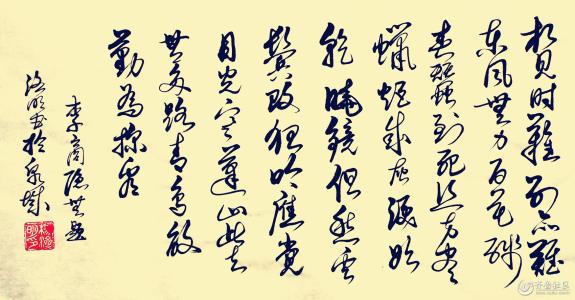 相見時難別亦難
東風無力百花殘
春蠶到死絲方盡
蠟炬成灰淚始
乾曉鏡但愁雲
鬢改夜吟應覺
月光寒蓬山此去
無多路青鳥殷
勤為探看
李商隱無題
書於泉城